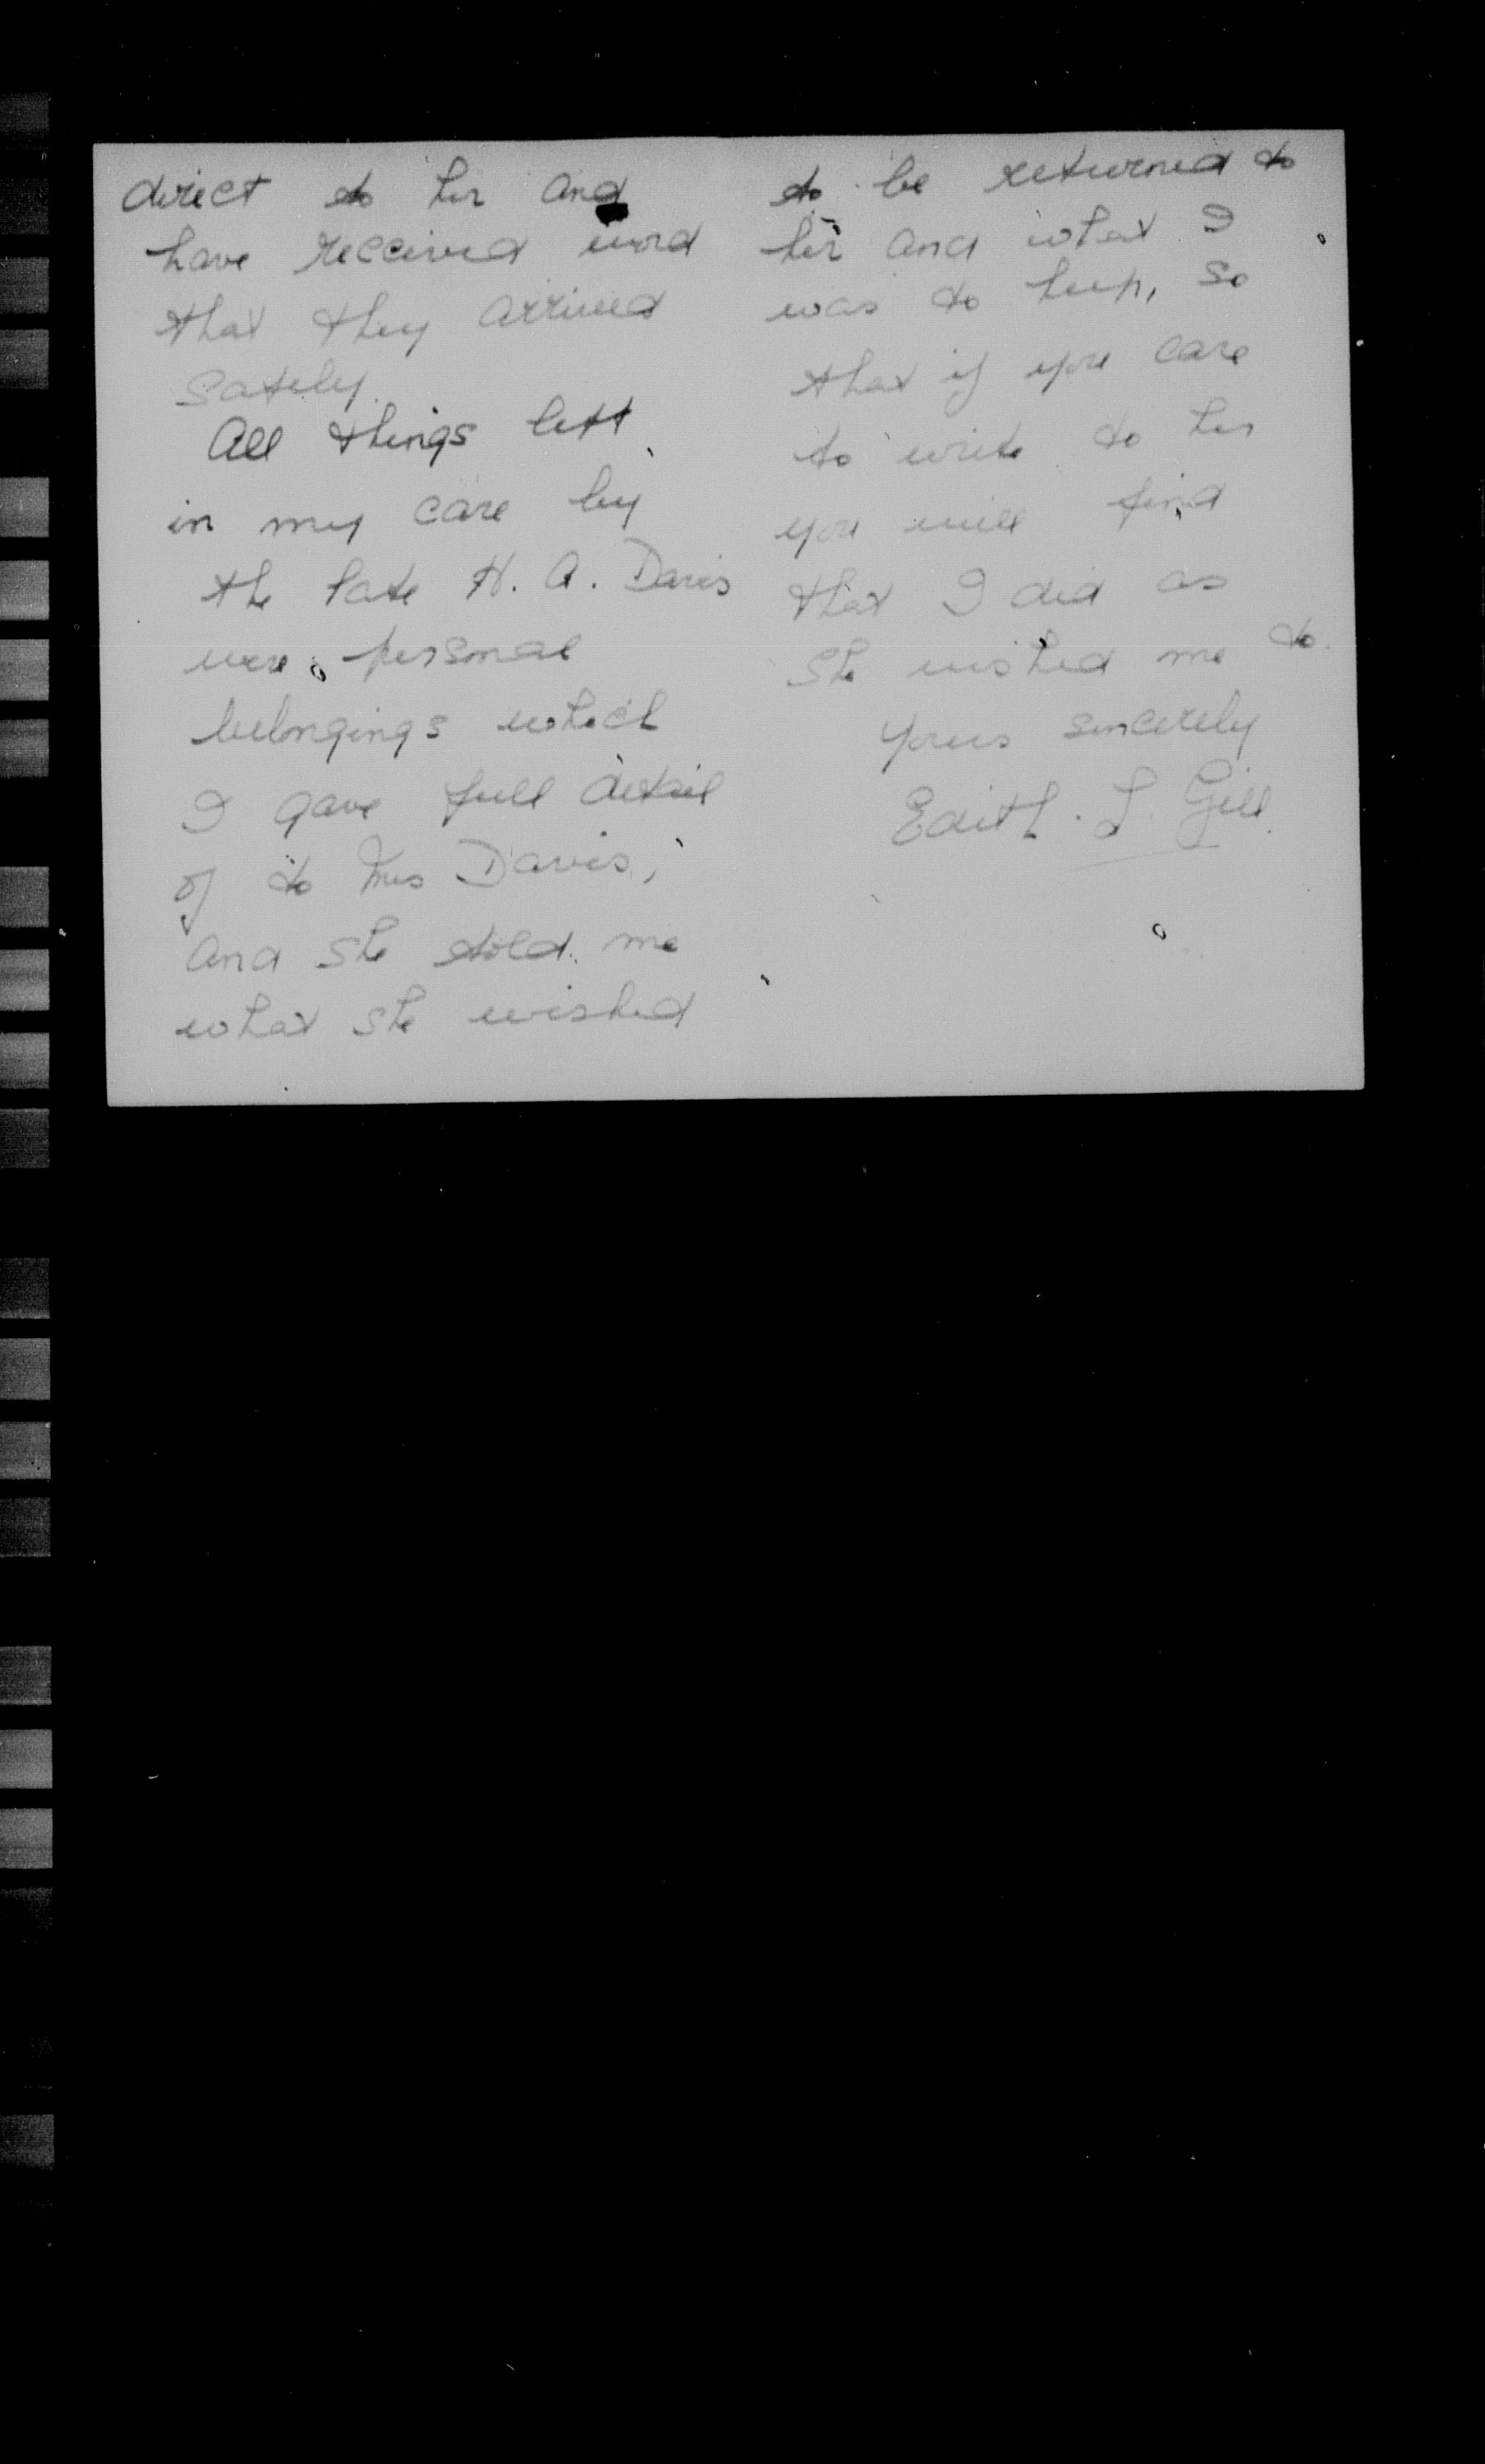 direct to her and
have received word
that they arrived
safely.
All things left
in my care by
the late H. A. Davis
were personal
belongings which
I gave full detail
of to Mrs Davis,
and she told me
what she wished
to be returned to
her and what I
was to keep, so
that if you care
to write to her
you will find
that I did as
she wished me to.
Yours sincerely
Edith. L. Gill.